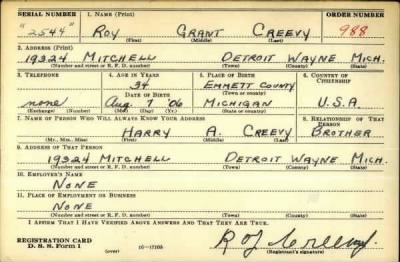 SERIAL NUMBER 1. NAME (Print) ORDER NUMBER
"2544" ROY GRANT CREEVY 988
(First) (Middle) (Last)
2. ADDRESS (Print)
19324 MITCHELL DETROIT WAYNE MICH.
(Number and street or R. F. D. number) (Town) (County) (State)
3. TELEPHONE 4. AGE IN YEARS 5. PLACE OF BIRTH 6. COUNTRY OF CITIZENSHIP
34 EMMETT COUNTY
DATE OF BIRTH (Town) (County)
none Aug 7 06 MICHIGAN U.S.A.
(Exchange) (Number) (Mo.) (Day) (Yr.) (State or country)
7. NAME OF PERSON WHO WILL ALWAYS KNOW YOUR ADDRESS 8. RELATIONSHIP OF THAT PERSON
HARRY A. CREEVY BROTHER
(Mr., Mrs., Miss) (First) (Middle) (Last)
9. ADDRESS OF THAT PERSON
19324 MITCHELL DETROIT WAYNE MICH.
(Number and street or R. F. D. number) (Town) (County) (State)
10. EMPLOYER'S NAME
NONE
11. PLACE OF EMPLOYMENT OR BUSINESS
NONE
(Number and street or R. F. D. number) (Town) (County) (State)
I AFFIRM THAT I HAVE VERIFIED ABOVE ANSWERS AND THAT THEY ARE TRUE.
REGISTRATION CARD
D. S. S. Form 1 (over) 16—17105 (Registrant's signature)